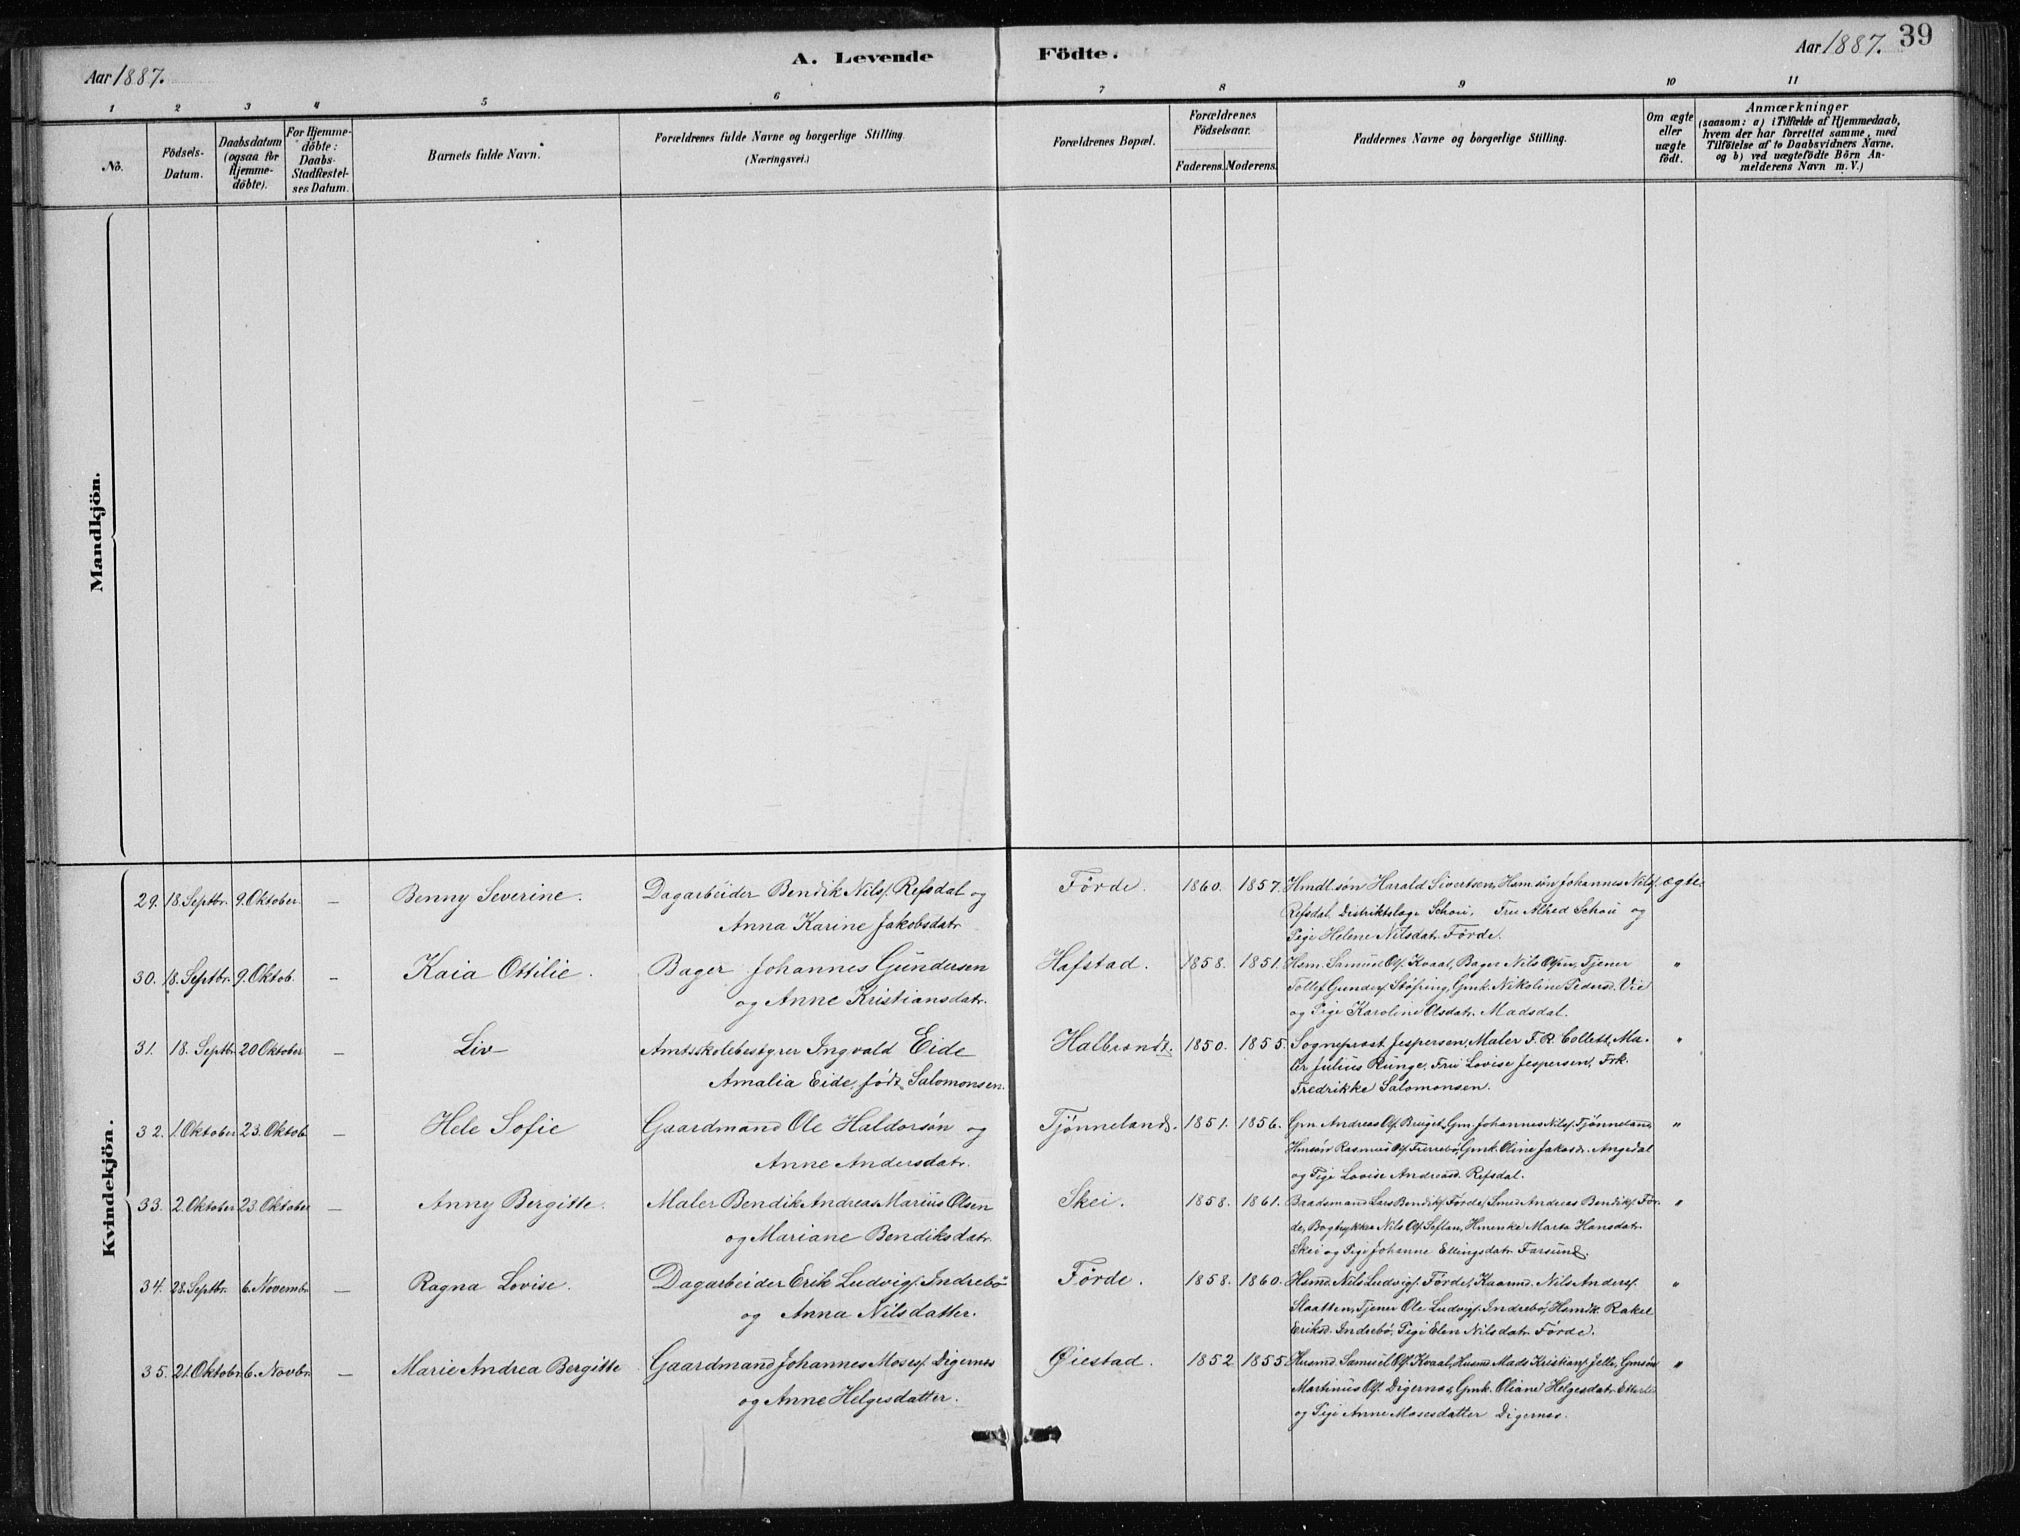 Aar 1887.
A. Levende Födte.
Aar 1887. 39
1 2 3 4 5 6 7 8 9 10 11
No.
Födsels-
Datum.
Daabsdatum
(ogsaa for
Hjemme-
döbte).
For Hjemme-
döbte:
Daabs-
Stadfæstel-
ses Datum.
Barnets fulde Navn.
Forældrenes fulde Navne og borgerlige Stilling.
(Næringsvei.)
Forældrenes Bopæl.
Forældrenes
Födselsaar.
Faderens. Moderens.
Faddernes Navne og borgerlige Stilling.
Om ægte
eller
uægte
födt.
Anmærkninger
(saasom: a) i Tilfælde af Hjemmedaab,
hvem der har forrettet samme, med
Tilföielse af to Daabsvidners Navne.
og b) ved uægtefödte Börn An-
melderens Navn m. V.)
Mandkjön.
Kvindekjön.
29. 18. Septbr. 9. Oktober. — Benny Severine. Dagarbeider Bendik Nilsf. Refsdal og
Anna Karine Jakobsdatr.
Førde. 1860. 1857. Hmdl.søn Harald Sivertsen, Hsm.søn Johannes Nilsf. ægte.
Refsdal, Distriktslæge Schou, Fru Alhed Schou og
Pige Helene Nilsdatr. Førde.
30. 18. Septbr. 9. Oktob. — Kaia Ottilie. Bager Johannes Gundersen
og Anne Kristiansdatr.
Hafstad. 1858. 1851. Hsm. Samuel Olsf. Kvaal, Bager Nils Olsen, Tjener
Tollef Gundersf. Støfring, Gmk. Nikoline Pedersd. Vie
og Pige Karoline Olsdatr. Madsdal.
"
31. 18. Septbr. 20 Oktober — Liv Amtsskolebestyrer Ingvald Eide
Amalia Eide, født Salomonsen.
Halbrandt. 1850. 1855. Sogneprost Jespersen, Maler F. R. Collett, Ma-
ler Julius Runge, Fru Lovise Jespersen, Frk.
Fredrikke Salomonsen.
"
32. 1. Oktober 23. Oktob. — Hele Sofie Gaardmand Ole Haldorsøn og
Anne Andersdatr.
Tjønneland. 1851. 1856. Gm. Andreas Olsf. Bruget, Gm. Johannes Nilsf. Tjønneland,
Hmsøn Rasmus Olsf. Farrebø, Gmk. Oline Jakobsdr. Angedal
og Pige Lovise Andreasd. Refsdal.
"
33. 2. Oktober 23. Oktober — Anny Bergitte. Maler Bendik Andreas Marius Olsen
og Mariane Bendiksdatr.
Skei. 1858. 1861. Baadsmand Lars Bendiksf. Førde, Smed Andreas Bendiksf. Før-
de, Bogtrykker Nils Olsf. Seftun, Hmenke Marta Hansdatr.
Skei og Pige Johanne Ellingsdatr. Farsund.
"
34. 28. Septbr. 6. Novembr. — Ragna Lovise. Dagarbeider Erik Ludvigsf. Indrebö
og Anna Nilsdatter.
Førde. 1858. 1860. Hsmd. Nils Ludvigsf. Førde, Kaarmd. Nils Andersf.
Slaatten, Tjener Ole Ludvigsf. Indrebö, Hsmdk. Rakel
Eriksd. Indrebö, Pige Elen Nilsdatr. Førde.
"
35. 21. Oktobr. 6. Novbr. — Marie Andrea Bergitte Gaardmand Johannes Mosesf. Digernes
og Anne Helgesdatter.
Øiestad. 1852 1855. Husmd. Samuel Olsf. Kvaal, Husmd. Mads Kristiansf. Jelle, Gmsøn
Martinus Olsf. Digernes, Gmk. Oliane Helgesdatr. Etterlid
og Pige Anne Mosesdatter Digernes.
"